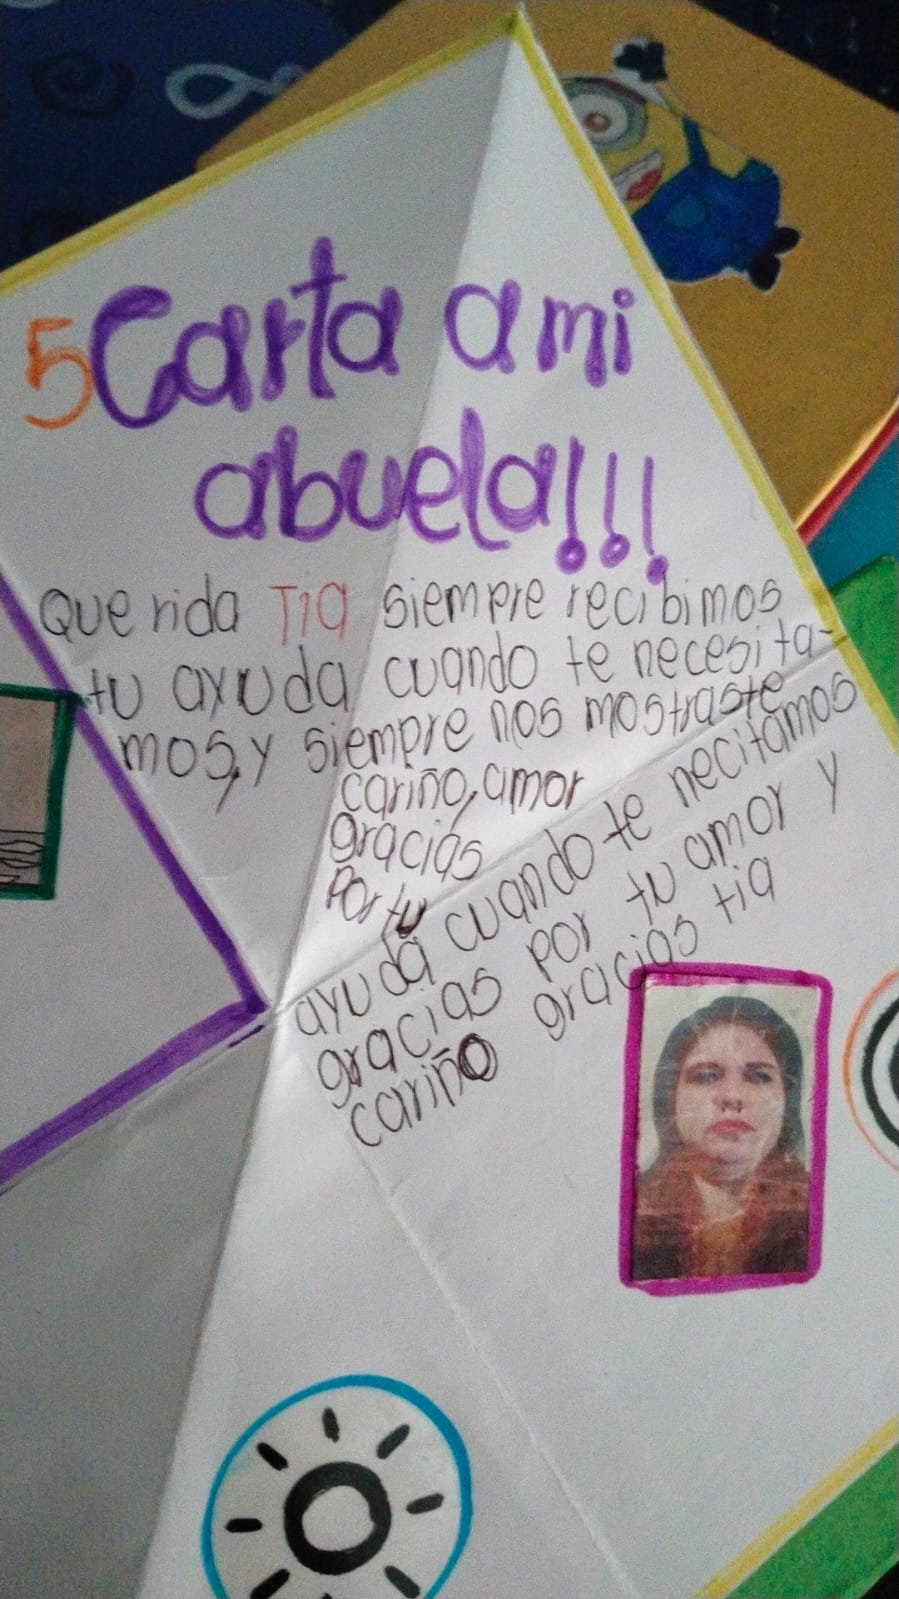 5 Carta a mi
abuela!!!
Querida Tia siempre recibimos
tu ayuda cuando te necesita-
mos, y siempre nos mostraste
cariño, amor
gracias
Por tu
ayuda cuando te necitamos
gracias por tu amor y
cariño gracias tia